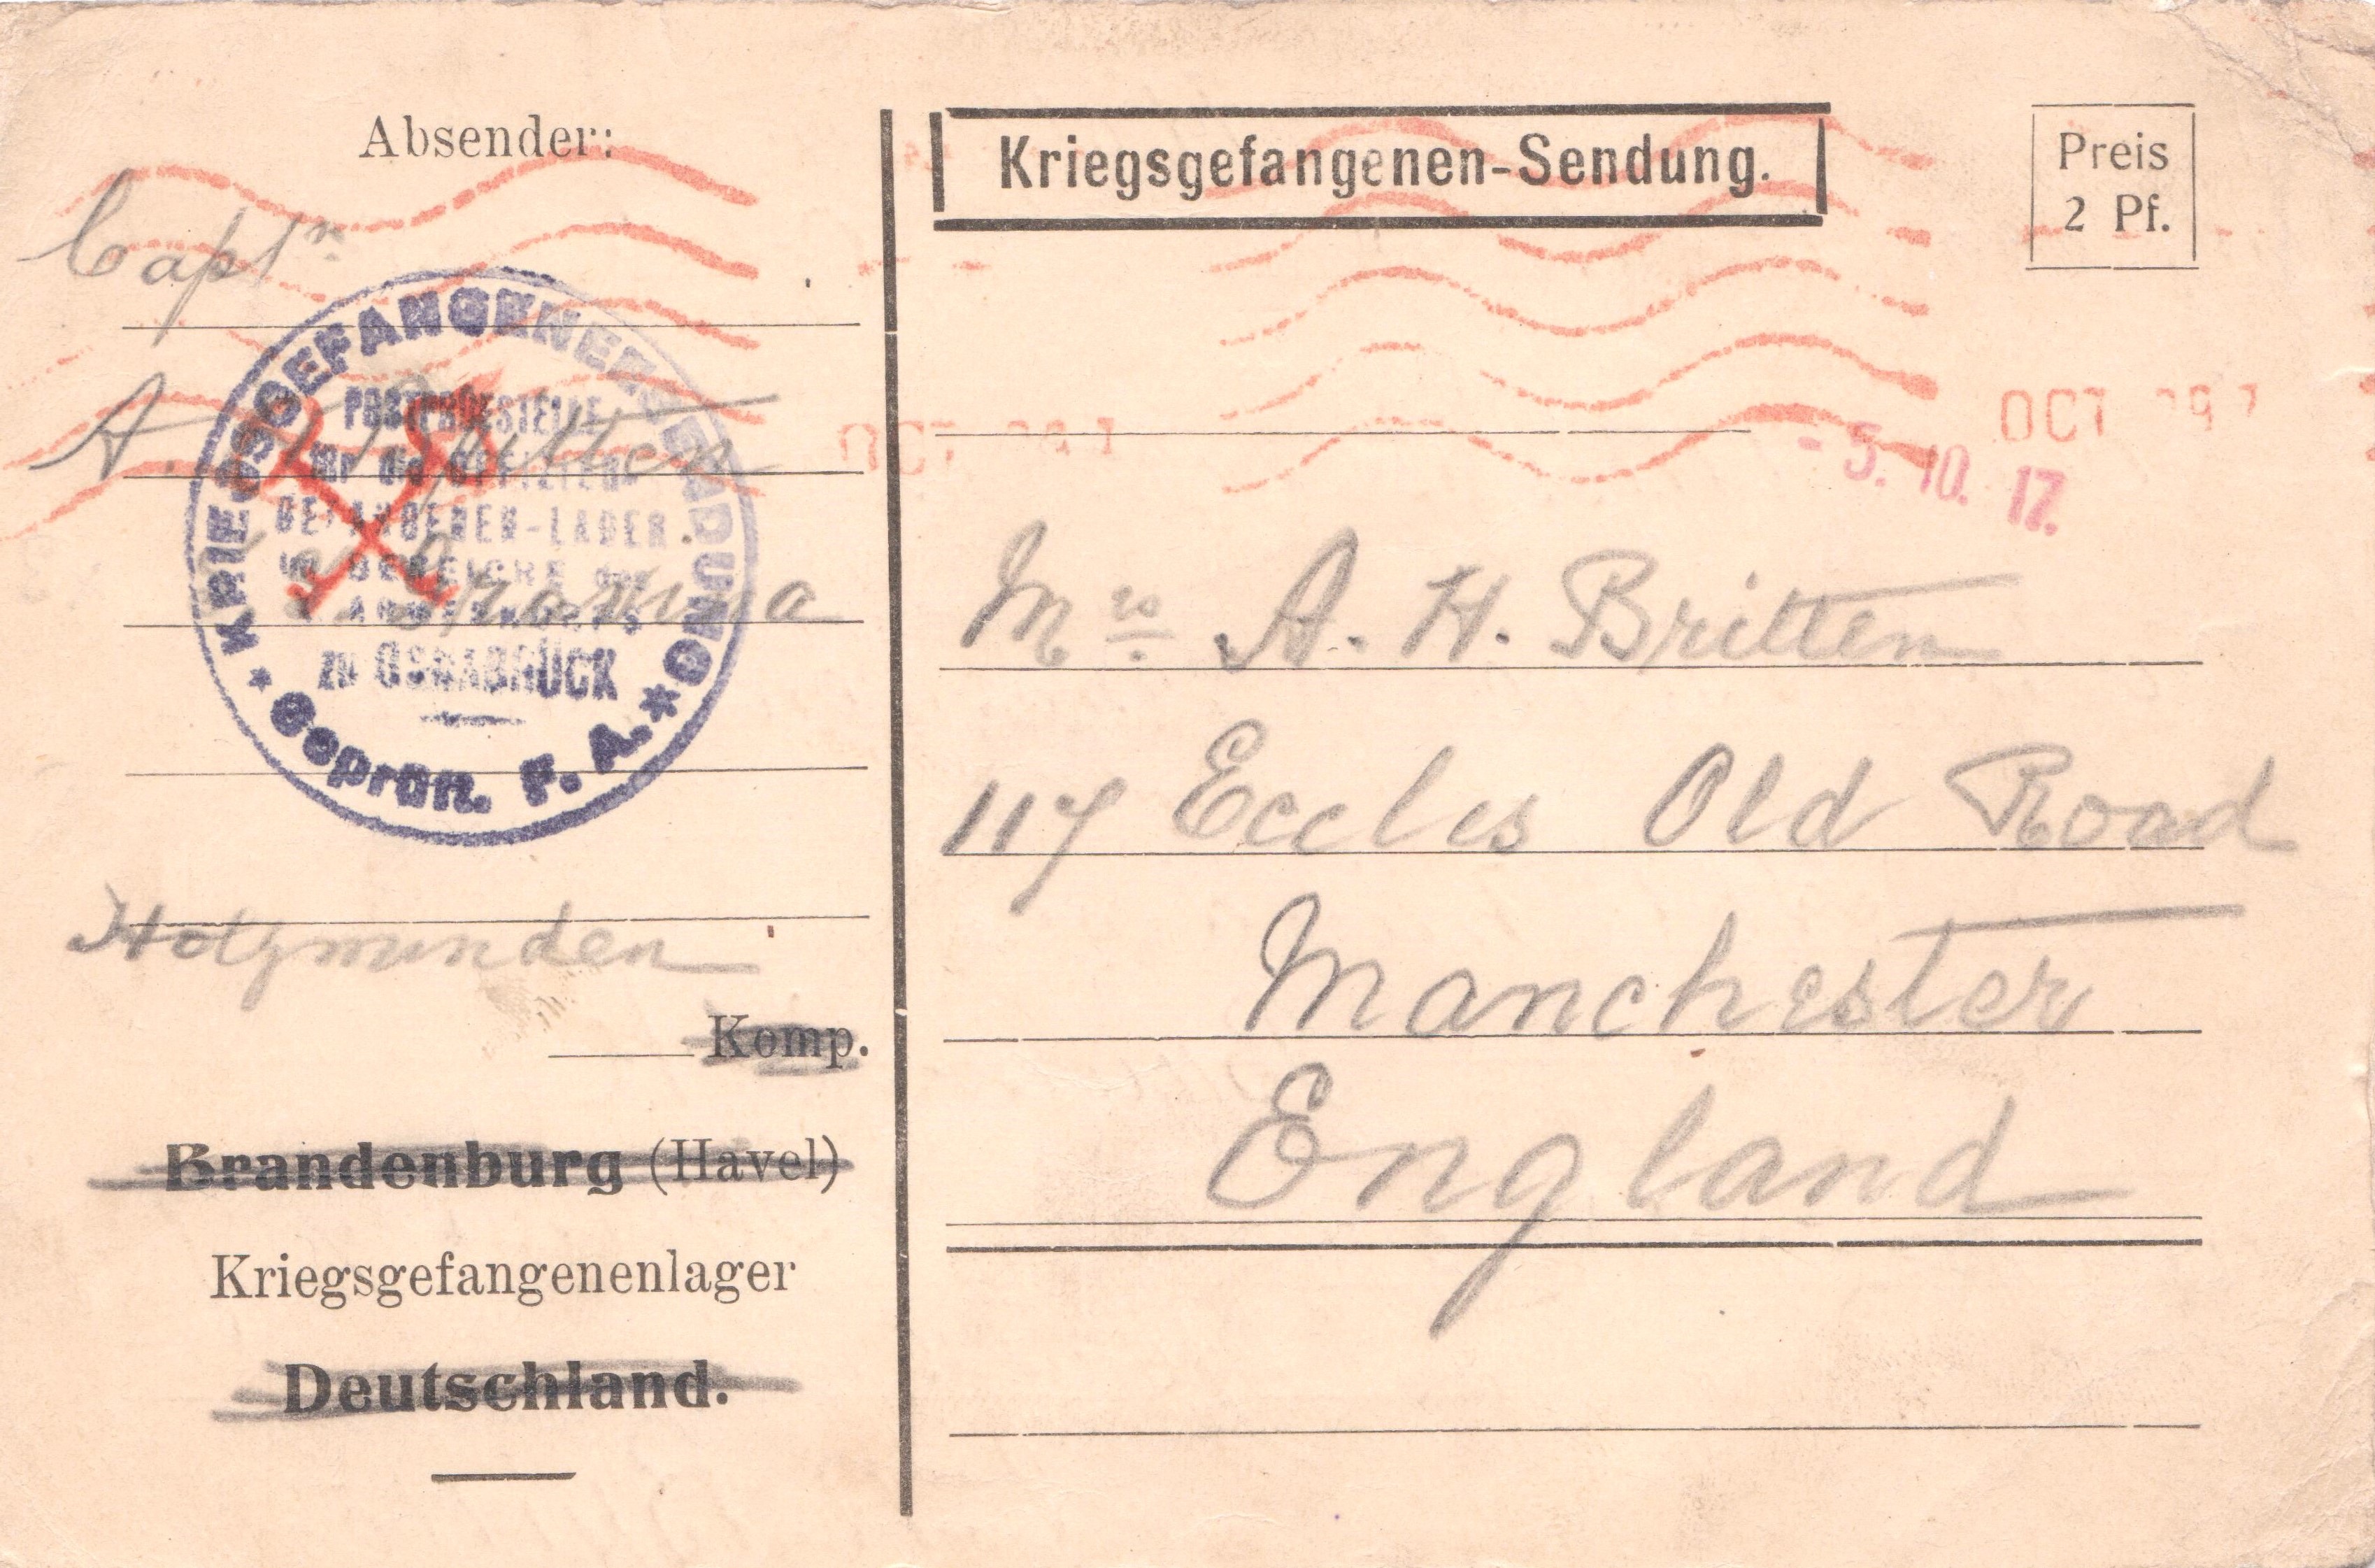 Absender:
Captn
A. H. Britten
Kriegsgefangenen-Sendung.
Preis
2 Pf.
OCT
OCT
- 5. 10. 17.
KRIEGSGEFANGENENSENDUNG
POSTPRÜFSTELLE
für die OFFIZIER-
GEFANGENEN-LAGER
IM BEREICHE des
zu OSNABRÜCK
* Geprüft. F. A. *
Mrs A. H. Britten
117 Eccles Old Road
Manchester
England
Holzmunden
Komp.
Brandenburg (Havel)
Kriegsgefangenenlager
Deutschland.